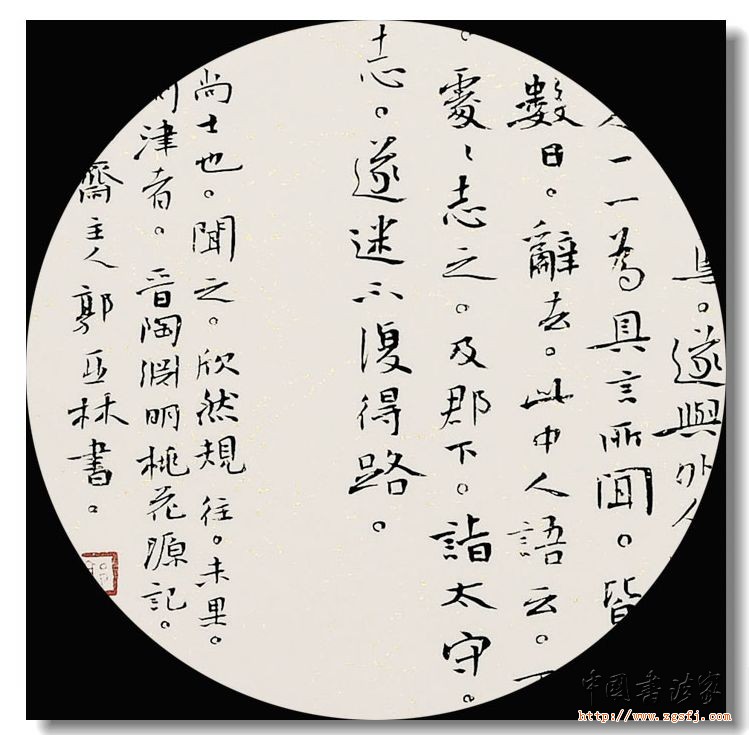 焉。遂與外人
人一一為具言所聞。皆
數日。辭去。此中人語云。不
。處〻志之。及郡下。詣太守。
志。遂迷不復得路。
尚士也。聞之。欣然規往。未果。
問津者。晋陶淵明桃花源記。
齋主人郭亚林書。
中国书法家
http://www.zgsfj.com